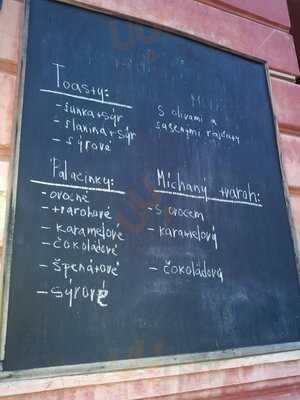 Toasty:
- šunka+sýr
- slanina+sýr
- sýrové
s olivami a
sušenými rajčaty
Palačinky:
- ovocné
- tvarohové
- karamelové
- čokoládové
- špenátové
- sýrové
Míchaný tvaroh:
- s ovocem
- karamelový
- čokoládový